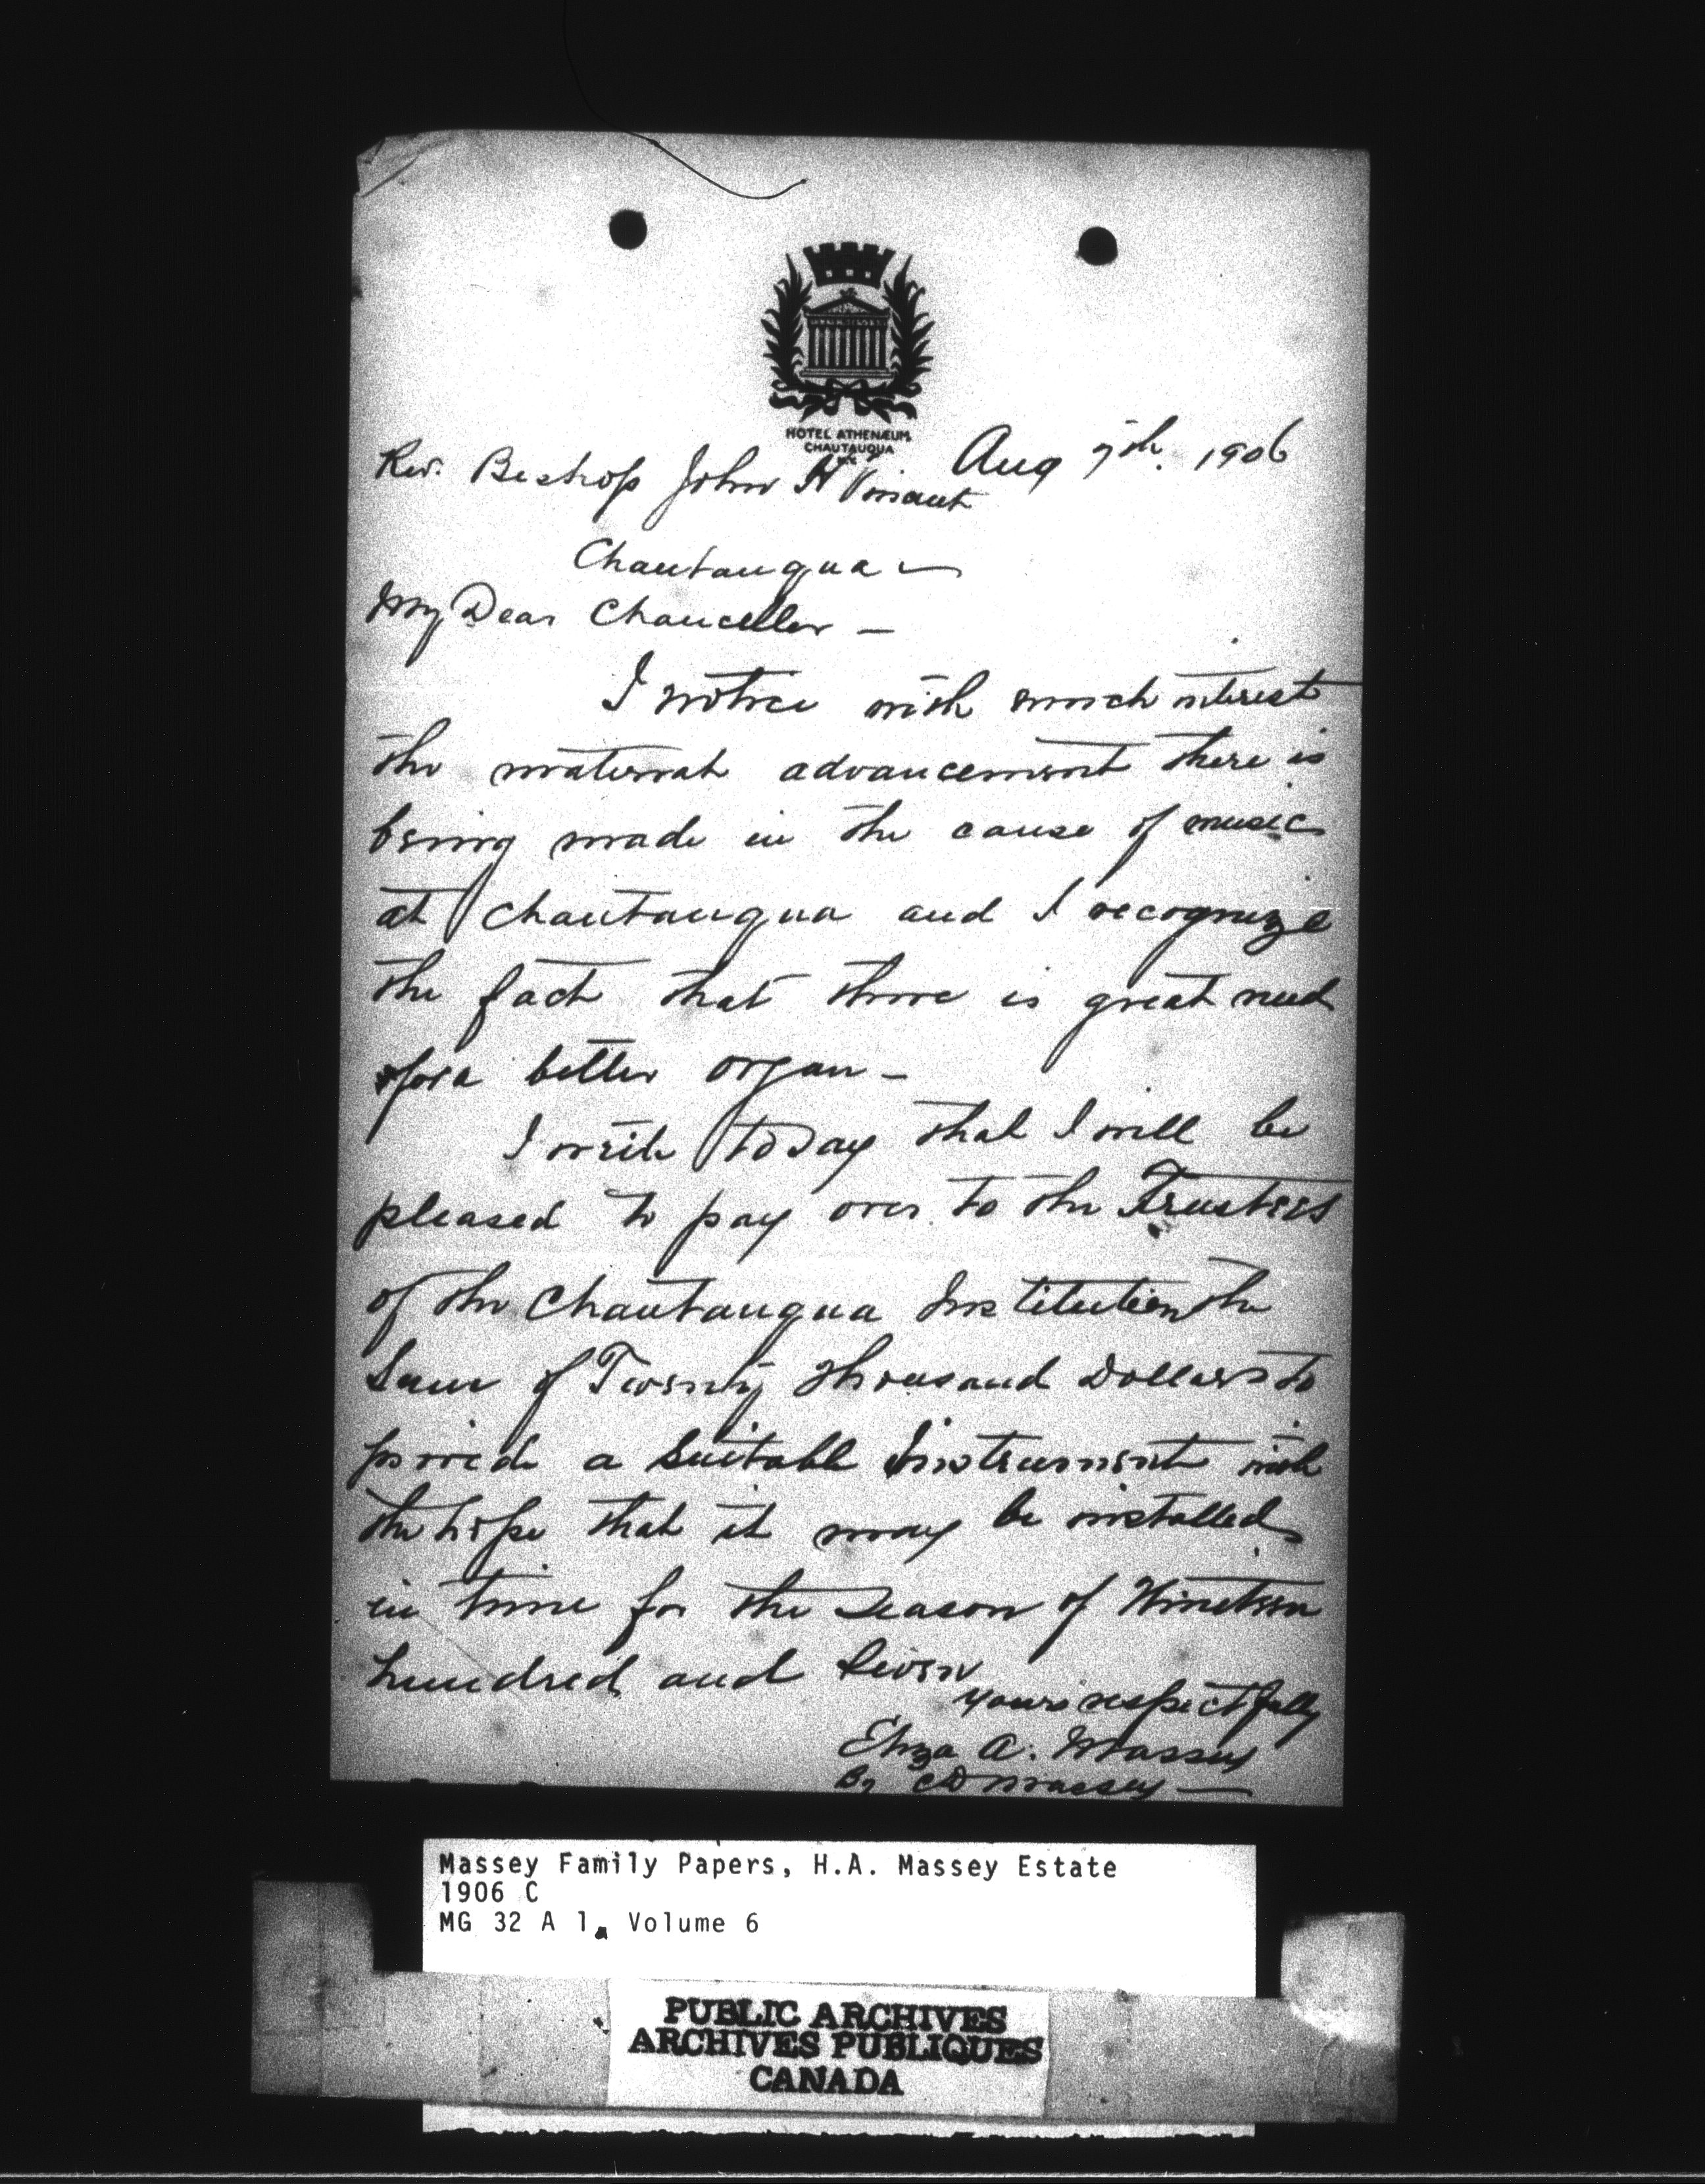 HOTEL ATHENÆUM
CHAUTAUQUA
N.Y.
Aug 7th. 1906
Rev. Bishop John H Vincent
Chautauqua —
My Dear Chancellor —
I notice with much interest
the material advancement there is
being made in the cause of music
at Chautauqua and I recognize
the fact that there is great need
for a better organ —
I write today that I will be
pleased to pay over to the Trustees
of the Chautauqua Institution the
Sum of Twenty Thousand Dollars to
provide a Suitable Instrument with
the hope that it may be installed
in time for the Season of Nineteen
hundred and Seven
Yours respectfully
Eliza A. Massey
By CD Massey —
Massey Family Papers, H.A. Massey Estate
1906 C
MG 32 A 1, Volume 6
PUBLIC ARCHIVES
ARCHIVES PUBLIQUES
CANADA